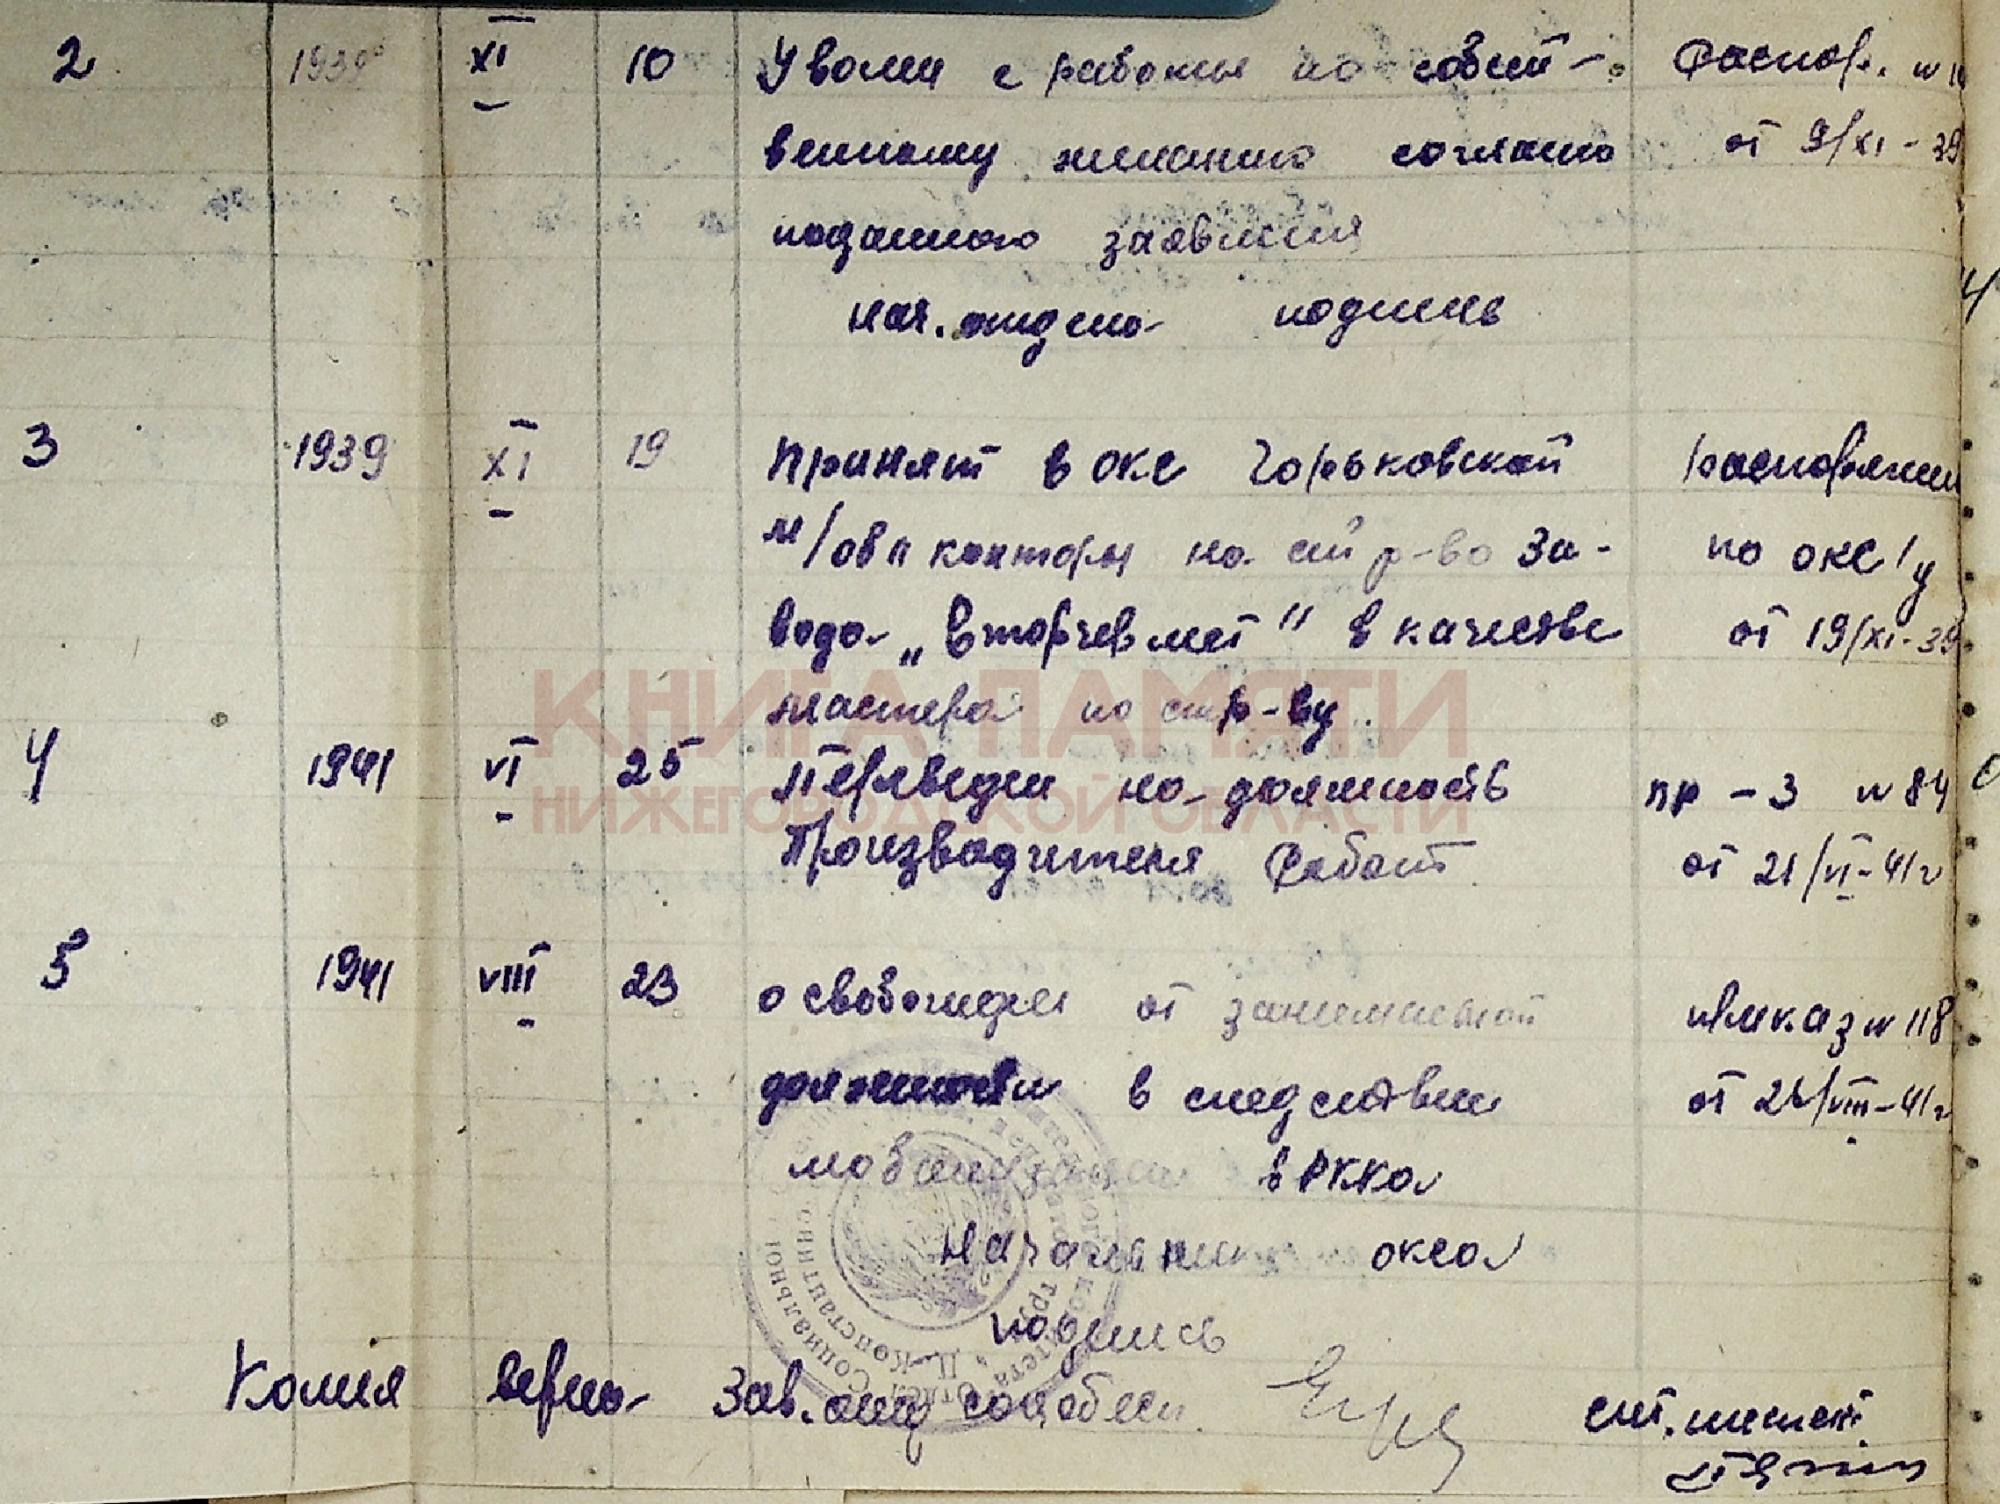 2 1939 XI 10 Уволен с работы по собст- Распор. №
венному желанию согласно от 9/XI-39
поданного заявления
нач. отдела подпись
3 1939 XI 19 Принят в окс Горьковской распоряжени
м/обл конторы на стр-во За- по оксу
вода „Вторчермет" в качестве от 19/XI-39
мастера по стр-ву
4 1941 VI 25 Переведен на должность пр-з № 84
Производителя Работ от 21/VI-41г
5 1941 VIII 23 освобожден от занимаемой приказ № 118
должности в следствии от /VIII-41г
мобилизации в РККа
Начальник окса
подпись
Копия верна Зав. отд соцобесп. ст. инспект.
КНИГА ПАМЯТИ
НИЖЕГОРОДСКОЙ ОБЛАСТИ